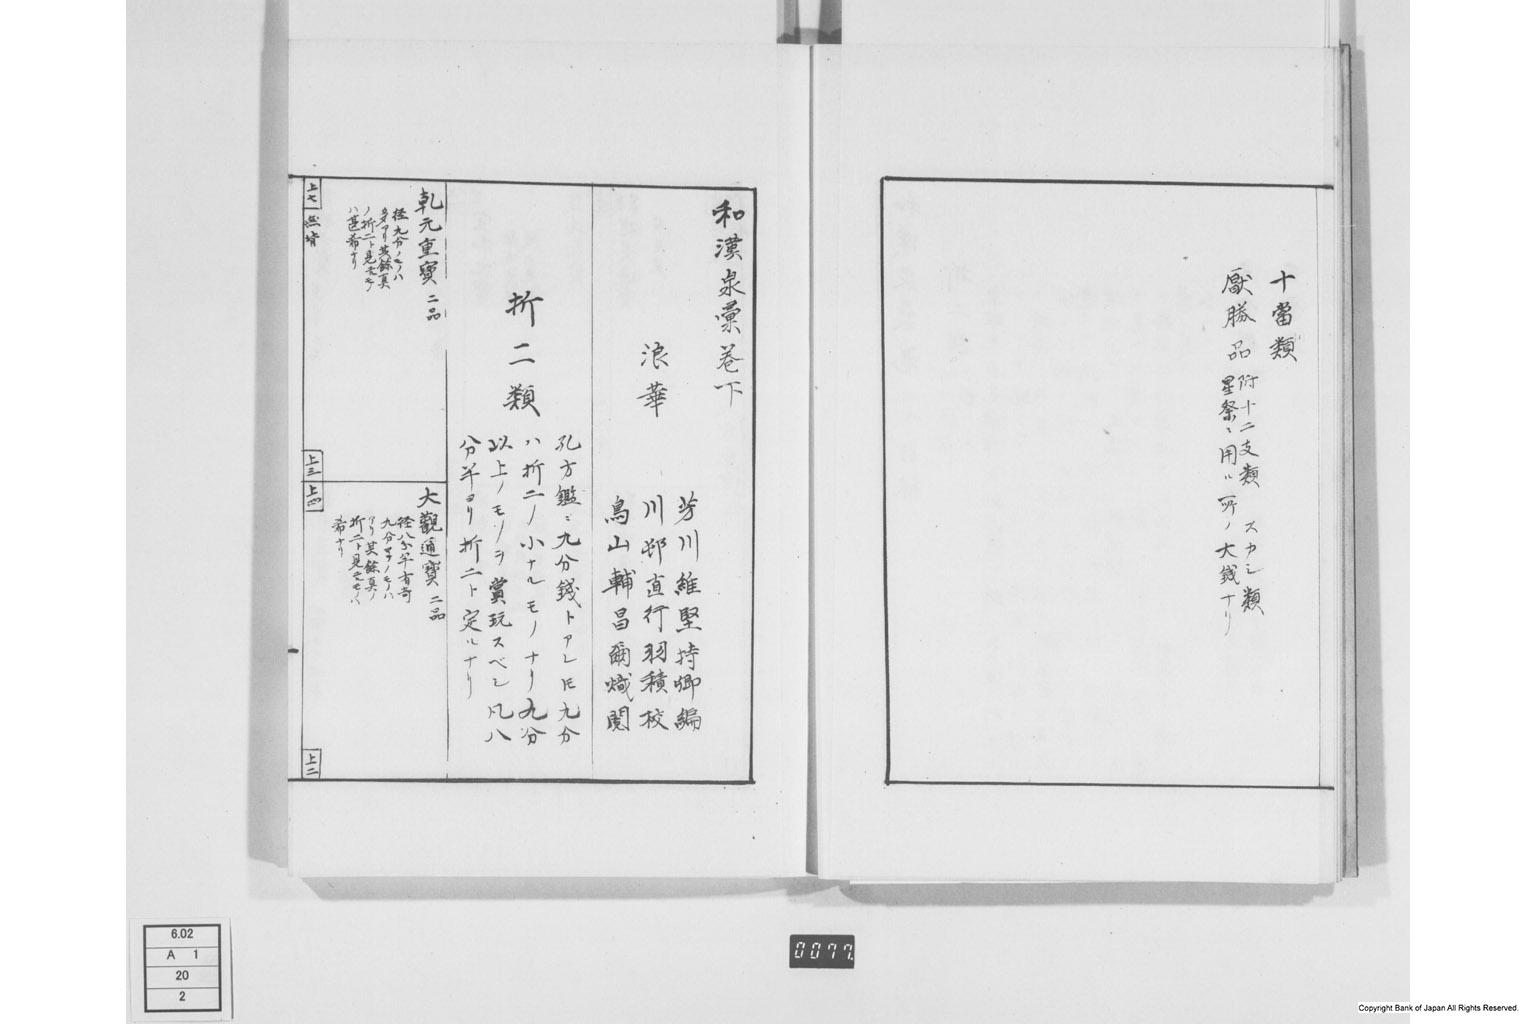 十當類
厭勝品
附十二支類 スカシ類
星祭ニ用ル所ノ大銭ナリ
和漢泉彙巻下
浪華
芳川維堅持卿編
川邨直行羽積校
鳥山輔昌爾熾閲
折二類
孔方鑑ニ九分銭トアレ𪜈九分
ハ折二ノ小ナルモノナリ九分
以上ノモノヲ賞玩スベシ凡八
分半ヨリ折二ト定ルナリ
乾元重寶 二品
径九分ノモノハ
多アリ其餘真
ノ折二ト見ユルモノ
ハ甚希ナリ
上七
無背
大觀通寶 二品
径八分半有奇
九分マテノモノハ
アリ其餘真ノ
折二ト見ユルモノハ
希ナリ
上三
上四
上二
6.02
A 1
20
2
0077
Copyright Bank of Japan All Rights Reserved.